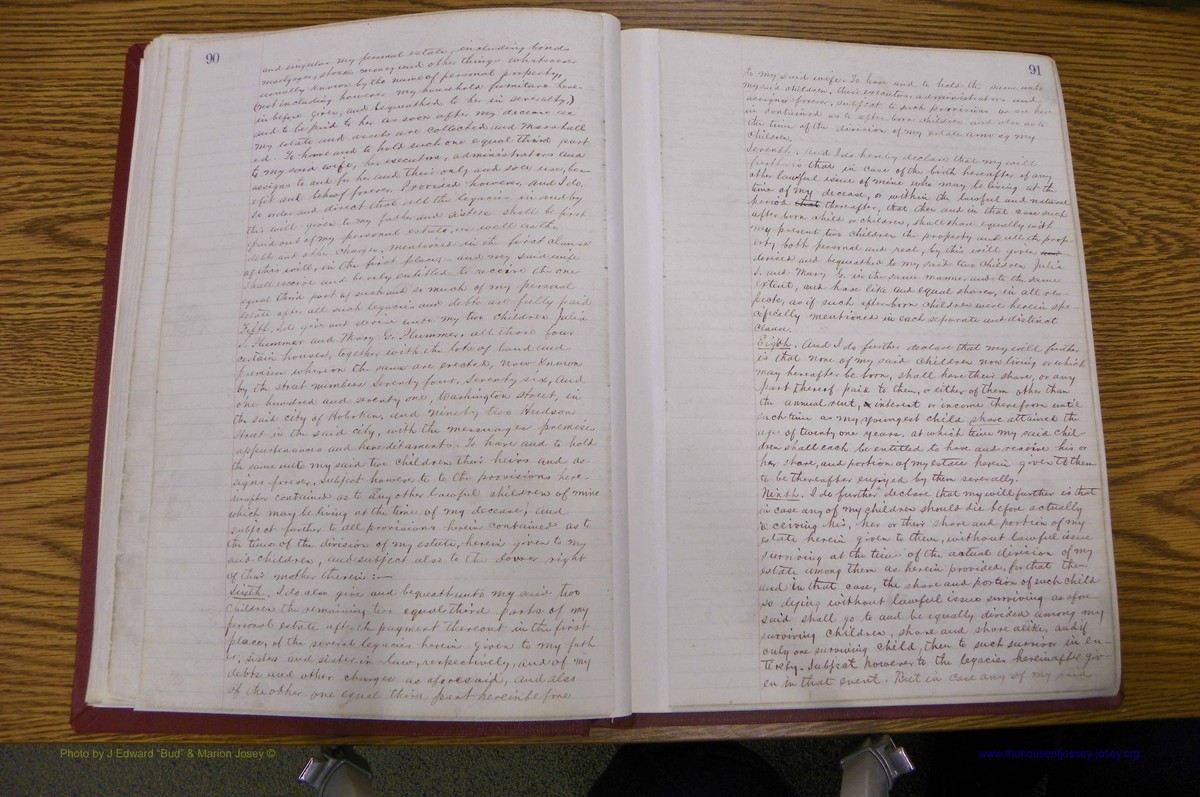 90
and singular my personal estate, including bonds
mortgages, stocks money and other things whatsoever
usually known by the name of personal property,
(not including however my household furniture here-
inbefore given and bequeathed to her in severalty,)
and to be paid to her as soon after my decease as
my estate and assets are collected and marshall
ed. To have and to hold such one equal third part
to my said wife, her executors, administrators and
assigns to and for her and their only and sole use, ben-
efit and behoof forever. Provided however, and I do,
so order and direct that all the legacies in and by
this will given to my father and sisters shall be first
paid out of my personal estate, as well as the
debts and other charges, mentioned in the first clause
of this will, in the first place, and my said wife
shall receive and be only entitled to receive the one
equal third part of such and so much of my personal
estate after all such legacies and debts are fully paid
Fifth. I do give and devise unto my two children Julia
I. Plummer and Mary G. Plummer all those four
certain houses, together with the lots of land and
premises whereon the same are erected, now known
by the street numbers Seventy four, Seventy six, and
one hundred and seventy one, Washington Street, in
the said city of Hoboken, and ninety two Hudson
Street in the said city, with the messuages premises
appurtenances and hereditaments. To have and to hold
the same unto my said two children their heirs and as-
signs forever, subject however to to the provisions here-
inafter contained as to any other lawful children of mine
which may be living at the time of my decease, and
subject further to all provisions herein contained as to
the time of the division of my estate, herein given to my
said children, and subject also to the dower right
of their mother therein:—
Sixth. I do also give and bequeath unto my said two
children the remaining two equal third parts of my
personal estate after the payment thereout in the first
place, of the several legacies herein given to my fath
er, sister and sister in law, respectively, and of my
debts and other charges as aforesaid, and also
of the other one equal third part hereinbefore
91
to my said wife. To have and to hold the same unto
my said children, their executors, administrators and
assigns forever, subject to such provision as are here
in contained as to after born children and also as to
the time of the division of my estate among my
children.
Seventh. And I do hereby declare that my will
further is that in case of the birth hereafter of any
other lawful issue of mine who may be living at the
time of my decease, or within the lawful and natural
period that thereafter, that then and in that case such
after born child or children, shall share equally with
my present two children the property and all the prop
erty both personal and real, by this will given
devised and bequeathed to my said two children Julia
I. and Mary G. in the same manner and to the same
extent, and have like and equal shares, in all re-
spects, as if such after-born children were herein spe
cifically mentioned in each separate and distinct
clause.
Eigth. And I do further declare that my will further
is that none of my said children now living or which
may hereafter be born, shall have their share, or any
part thereof paid to them, or either of them other than
the annual rent, interest or income therefrom until
such time as my youngest child shave attained the
age of twenty one years. at which time my said chil-
dren shall each be entitled to have and receive his or
her share, and portion of my estate herein given to them
to be thereafter enjoyed by them severally.
Ninth. I do further declare that my will further is that
in case any of my children should die before actually
receiving his, her or their share and portion of my
estate herein given to them, without lawful issue
surviving at the time of the actual division of my
estate among them as herein provided, for that then
and in that case, the share and portion of such child
so dying without lawful issue surviving as afore
said shall go to and be equally divided among my
surviving children, share and share alike, and if
only one surviving child, then to such survivor in en-
terety. Subject however to the legacies hereinafter giv-
en in that event. But in case any of my said
Photo by J Edward "Bud" & Marion Josey ©